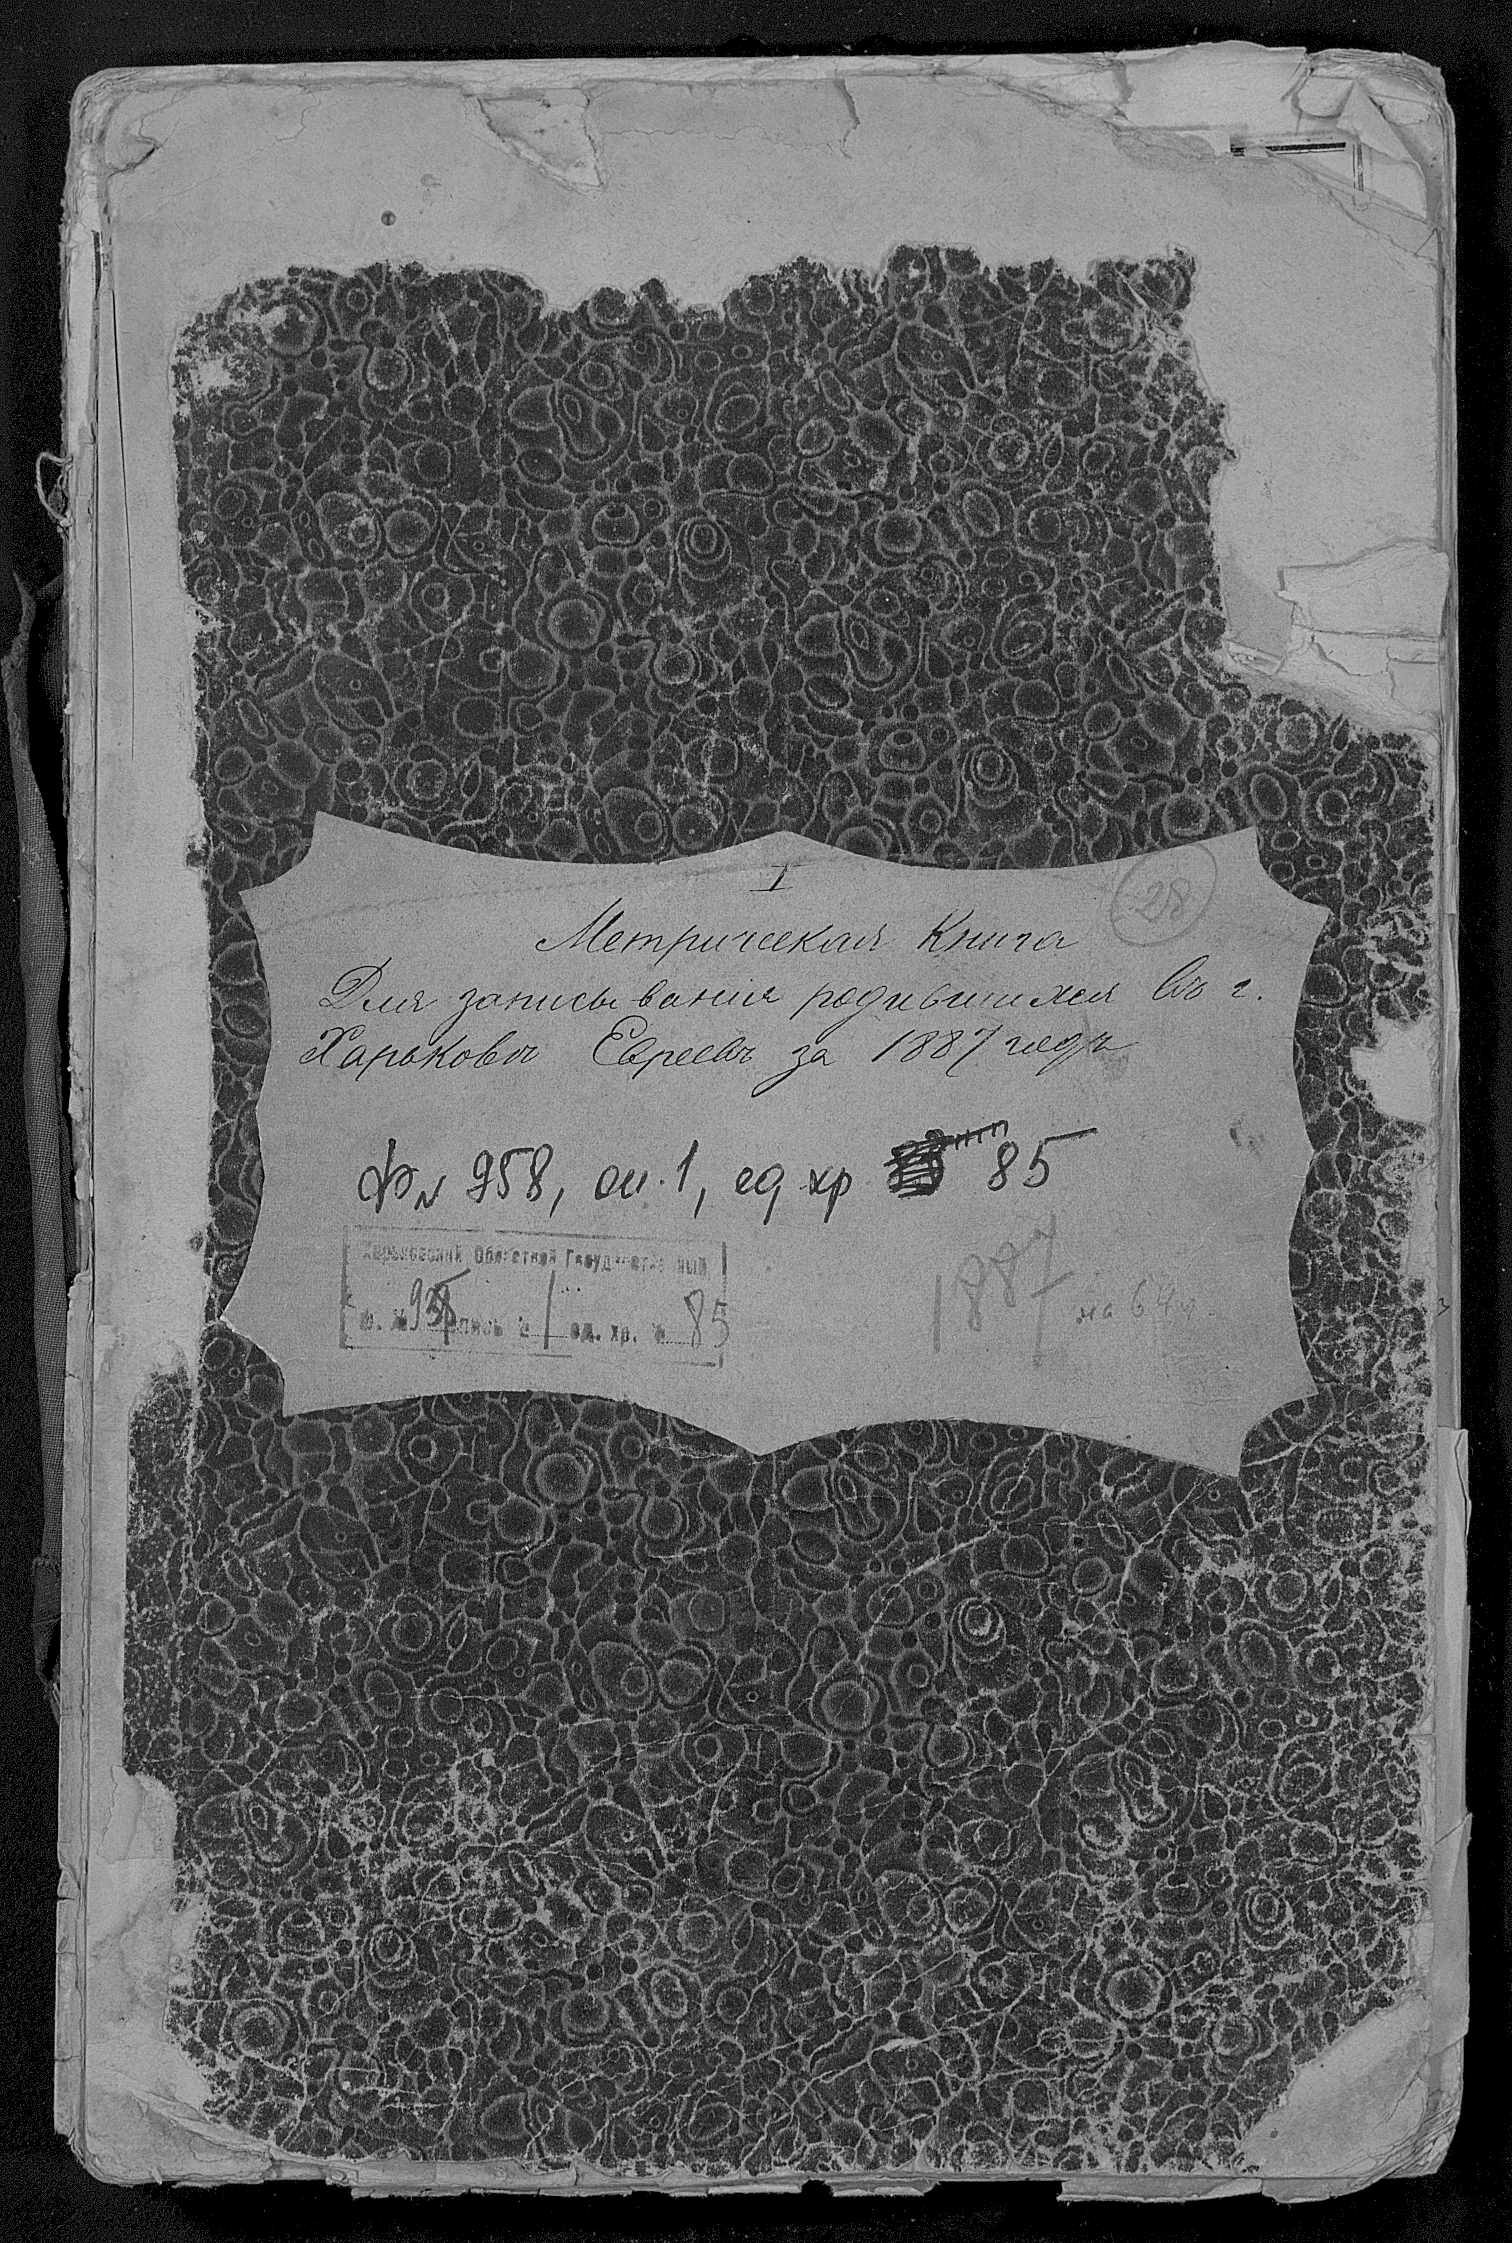 I
28
Метрическая Книга
Для записыванія родившихся въ г.
Харьковѣ Евреевъ за 1887 годъ
Ф N 958, оп. 1, ед хр 85
Харьковский Областной Государственный
Ф. № 958 опись № 1 ед. хр. № 85
1887 на 64 л.